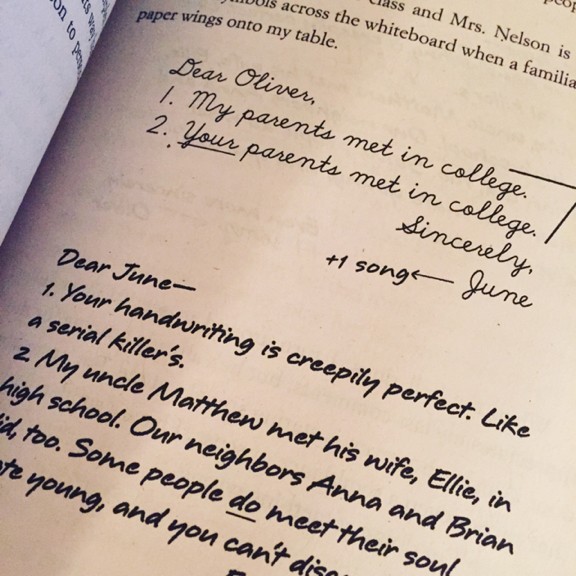 class and Mrs. Nelson is
across the whiteboard when a
paper wings onto my table.
Dear Oliver,
1. My parents met in college.
2. Your parents met in college.
Sincerely,
+1 song← June
Dear June—
1. Your handwriting is creepily perfect. Like
a serial killer's.
2 My uncle Matthew met his wife, Ellie, in
high school. Our neighbors Anna and Brian
too. Some people do meet their soul
young, and you can't